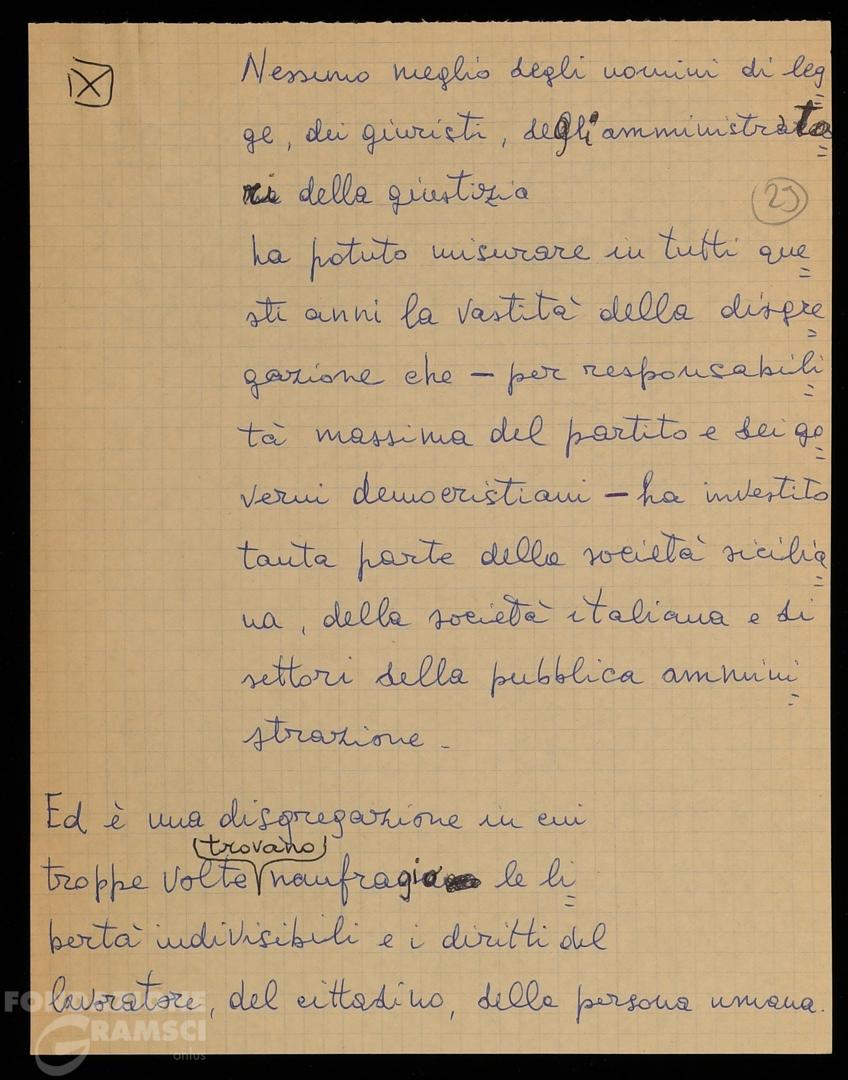 Nessuno meglio degli uomini di leg
ge, dei giuristi, degli amministrato
ri della giustizia
29
ha potuto misurare in tutti que
sti anni la vastità della disgre
gazione che – per responsabili
tà massima del partito e dei go
verni democristiani – ha investito
tanta parte della società sicilia
na, della società italiana e di
settori della pubblica ammini
strazione.
Ed è una disgregazione in cui
trovano
troppe volte naufragio le li
bertà indivisibili e i diritti del
lavoratore, del cittadino, della persona umana.
FONDAZIONE
GRAMSCI
onlus